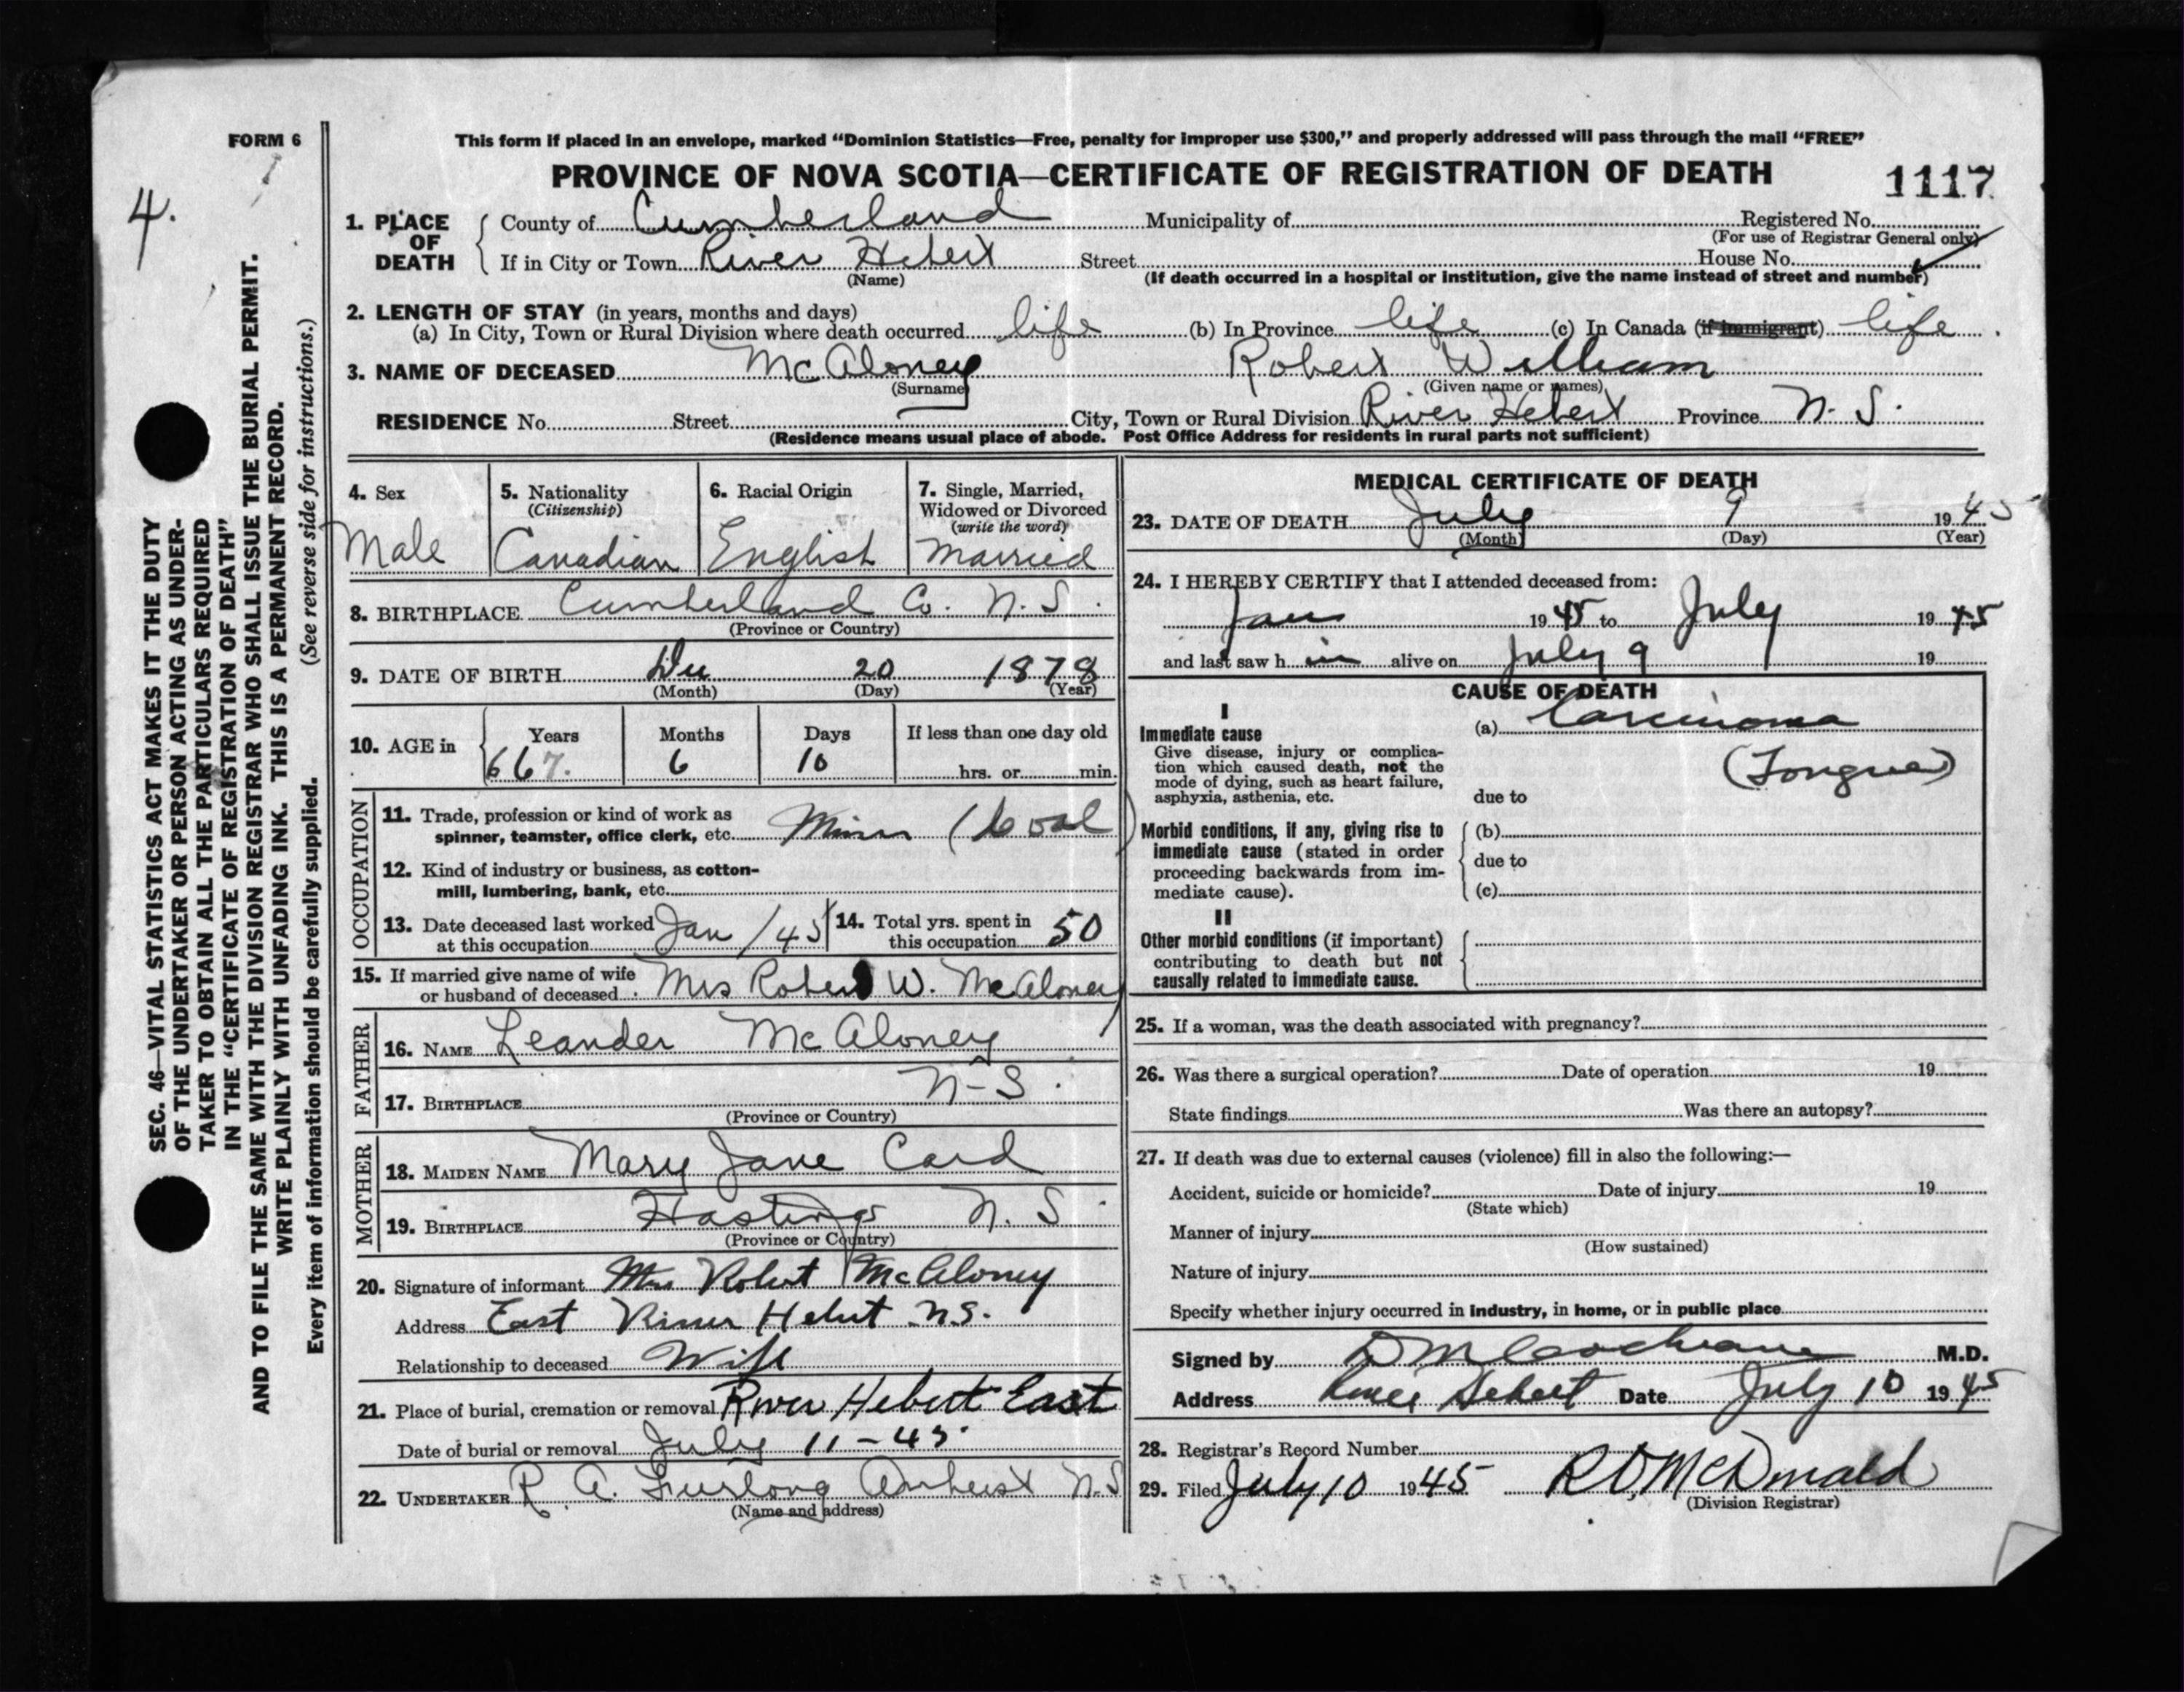 FORM 6
This form if placed in an envelope, marked “Dominion Statistics—Free, penalty for improper use $300,” and properly addressed will pass through the mail “FREE”
PROVINCE OF NOVA SCOTIA—CERTIFICATE OF REGISTRATION OF DEATH 1117
4.
1. PLACE OF DEATH
County of Cumberland Municipality of Registered No.
(For use of Registrar General only)
If in City or Town River Hebert Street House No.
(Name) (If death occurred in a hospital or institution, give the name instead of street and number)
2. LENGTH OF STAY (in years, months and days)
(a) In City, Town or Rural Division where death occurred life (b) In Province life (c) In Canada (if immigrant) life
3. NAME OF DECEASED McAloney Robert William
(Surname) (Given name or names)
RESIDENCE No. Street City, Town or Rural Division River Hebert Province N. S.
(Residence means usual place of abode. Post Office Address for residents in rural parts not sufficient)
4. Sex
Male
5. Nationality
(Citizenship)
Canadian
6. Racial Origin
English
7. Single, Married,
Widowed or Divorced
(write the word)
Married
8. BIRTHPLACE Cumberland Co. N. S.
(Province or Country)
9. DATE OF BIRTH Dec 20 1878
(Month) (Day) (Year)
10. AGE in Years Months Days If less than one day old
667. 6 10 hrs. or min.
OCCUPATION
11. Trade, profession or kind of work as
spinner, teamster, office clerk, etc. Miner (Coal)
12. Kind of industry or business, as cotton-
mill, lumbering, bank, etc.
13. Date deceased last worked
at this occupation Jan /45
14. Total yrs. spent in
this occupation 50
15. If married give name of wife
or husband of deceased Mrs Robert W. McAloney
FATHER
16. NAME Leander McAloney
17. BIRTHPLACE N-S.
(Province or Country)
MOTHER
18. MAIDEN NAME Mary Jane Card
19. BIRTHPLACE Hastings N. S.
(Province or Country)
20. Signature of informant Mrs Robert McAloney
Address East River Hebert N.S.
Relationship to deceased Wife
21. Place of burial, cremation or removal River Hebert East
Date of burial or removal July 11-45.
22. UNDERTAKER R. A. Furlong Amherst N.S
(Name and address)
MEDICAL CERTIFICATE OF DEATH
23. DATE OF DEATH July 9 1945
(Month) (Day) (Year)
24. I HEREBY CERTIFY that I attended deceased from:
Jan 1945 to July 1945
and last saw h im alive on July 9 19
CAUSE OF DEATH
I
Immediate cause
Give disease, injury or complica-
tion which caused death, not the
mode of dying, such as heart failure,
asphyxia, asthenia, etc.
(a) Carcinoma
(Tongue)
due to
Morbid conditions, if any, giving rise to
immediate cause (stated in order
proceeding backwards from im-
mediate cause).
(b)
due to
(c)
II
Other morbid conditions (if important)
contributing to death but not
causally related to immediate cause.
25. If a woman, was the death associated with pregnancy?
26. Was there a surgical operation? Date of operation 19
State findings Was there an autopsy?
27. If death was due to external causes (violence) fill in also the following:—
Accident, suicide or homicide? Date of injury 19
(State which)
Manner of injury
(How sustained)
Nature of injury
Specify whether injury occurred in industry, in home, or in public place
Signed by D M Cochrane M.D.
Address River Hebert Date July 10 1945
28. Registrar's Record Number
29. Filed July 10 1945 R D McDonald
(Division Registrar)
SEC. 46—VITAL STATISTICS ACT MAKES IT THE DUTY
OF THE UNDERTAKER OR PERSON ACTING AS UNDER-
TAKER TO OBTAIN ALL THE PARTICULARS REQUIRED
IN THE “CERTIFICATE OF REGISTRATION OF DEATH”
AND TO FILE THE SAME WITH THE DIVISION REGISTRAR WHO SHALL ISSUE THE BURIAL PERMIT.
WRITE PLAINLY WITH UNFADING INK. THIS IS A PERMANENT RECORD.
Every item of information should be carefully supplied. (See reverse side for instructions.)